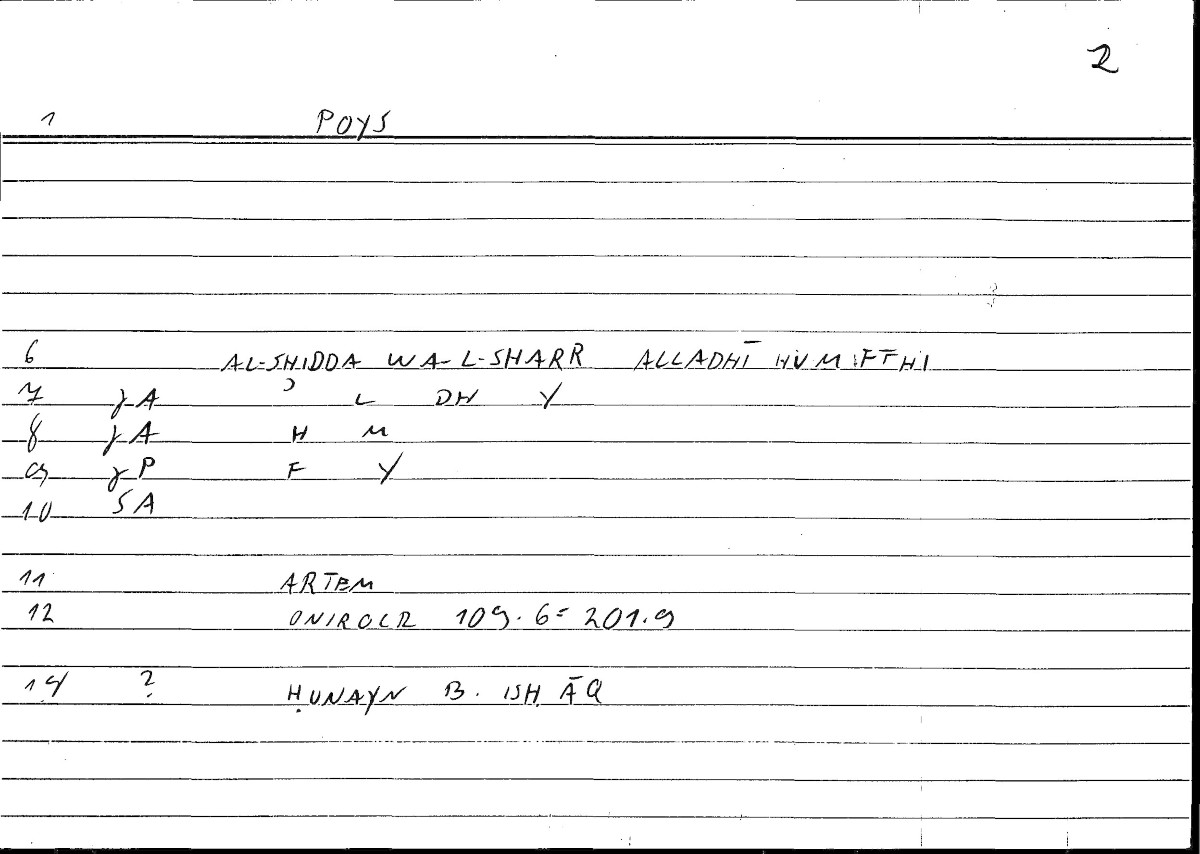 2
1 POYS
6 AL-SHIDDA WA-L-SHARR ALLADHĪ HUM FĪHI
7 γA ʾ L DH Y
8 γA H M
9 γP F Y
10 SA
11 ARTEM
12 ONIROCR 109.6=201.9
14 ? ḤUNAYN B. ISḤĀQ